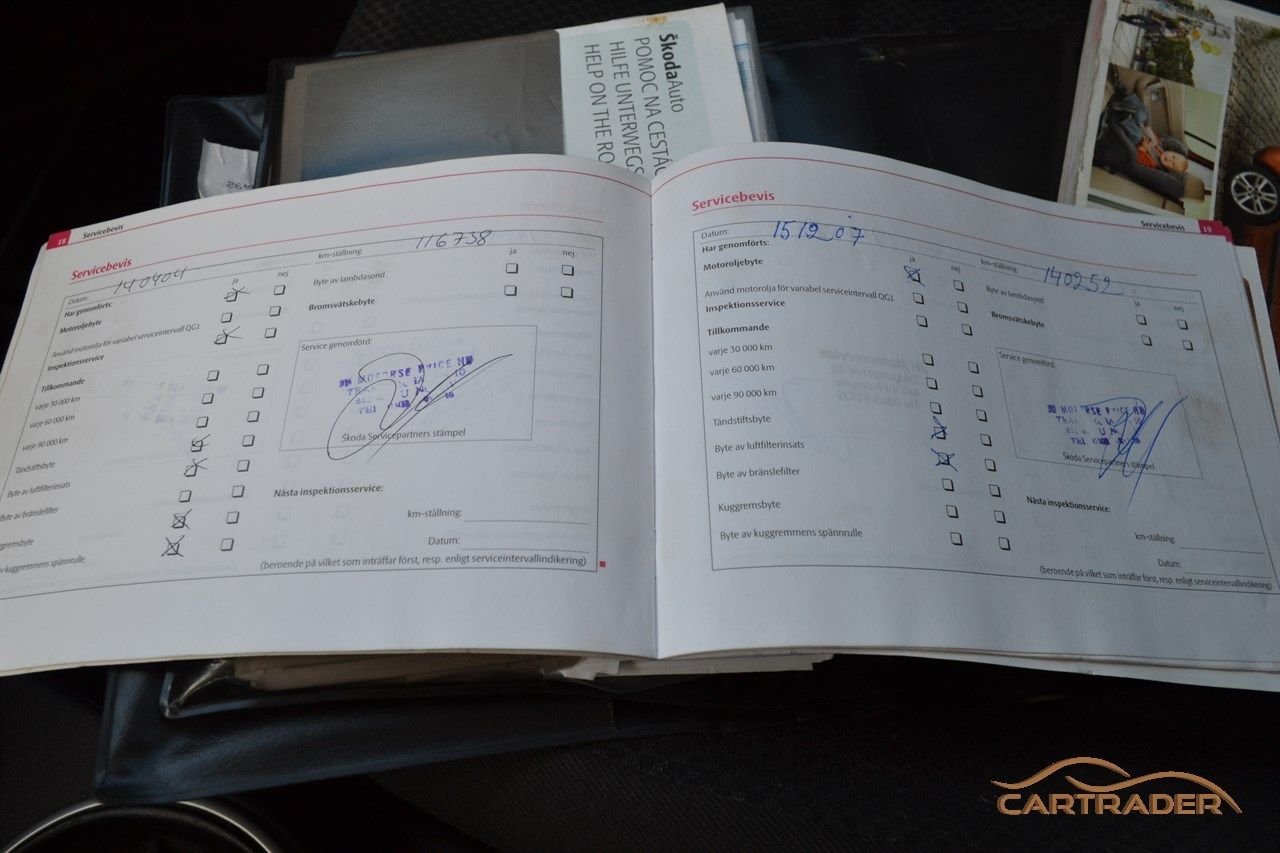 ŠkodaAuto
POMOC NA CESTÁ
HILFE UNTERWEGS
HELP ON THE RO
18 Servicebevis
Servicebevis
Datum: 140404 km-ställning: 116738
Har genomförts: ja nej
Motoroljebyte
Använd motorolja för variabel serviceintervall QG1
Inspektionsservice
Tillkommande
varje 30 000 km
varje 60 000 km
varje 90 000 km
Tändstiftsbyte
Byte av luftfilterinsats
Byte av bränslefilter
ggremsbyte
v kuggremmens spännrulle
ja nej
Byte av lambdasond
Bromsvätskebyte
Service genomförd:
Škoda Servicepartners stämpel
Nästa inspektionsservice:
km-ställning:
Datum:
(beroende på vilket som inträffar först, resp. enligt serviceintervallindikering)
Servicebevis 19
Servicebevis
Datum: 151207 km-ställning: 140252
Har genomförts: ja nej
Motoroljebyte
Använd motorolja för variabel serviceintervall QG1
Inspektionsservice
Tillkommande
varje 30 000 km
varje 60 000 km
varje 90 000 km
Tändstiftsbyte
Byte av luftfilterinsats
Byte av bränslefilter
Kuggremsbyte
Byte av kuggremmens spännrulle
ja nej
Byte av lambdasond
Bromsvätskebyte
Service genomförd:
Škoda Servicepartners stämpel
Nästa inspektionsservice:
km-ställning:
Datum:
(beroende på vilket som inträffar först, resp. enligt serviceintervallindikering)
CARTRADER